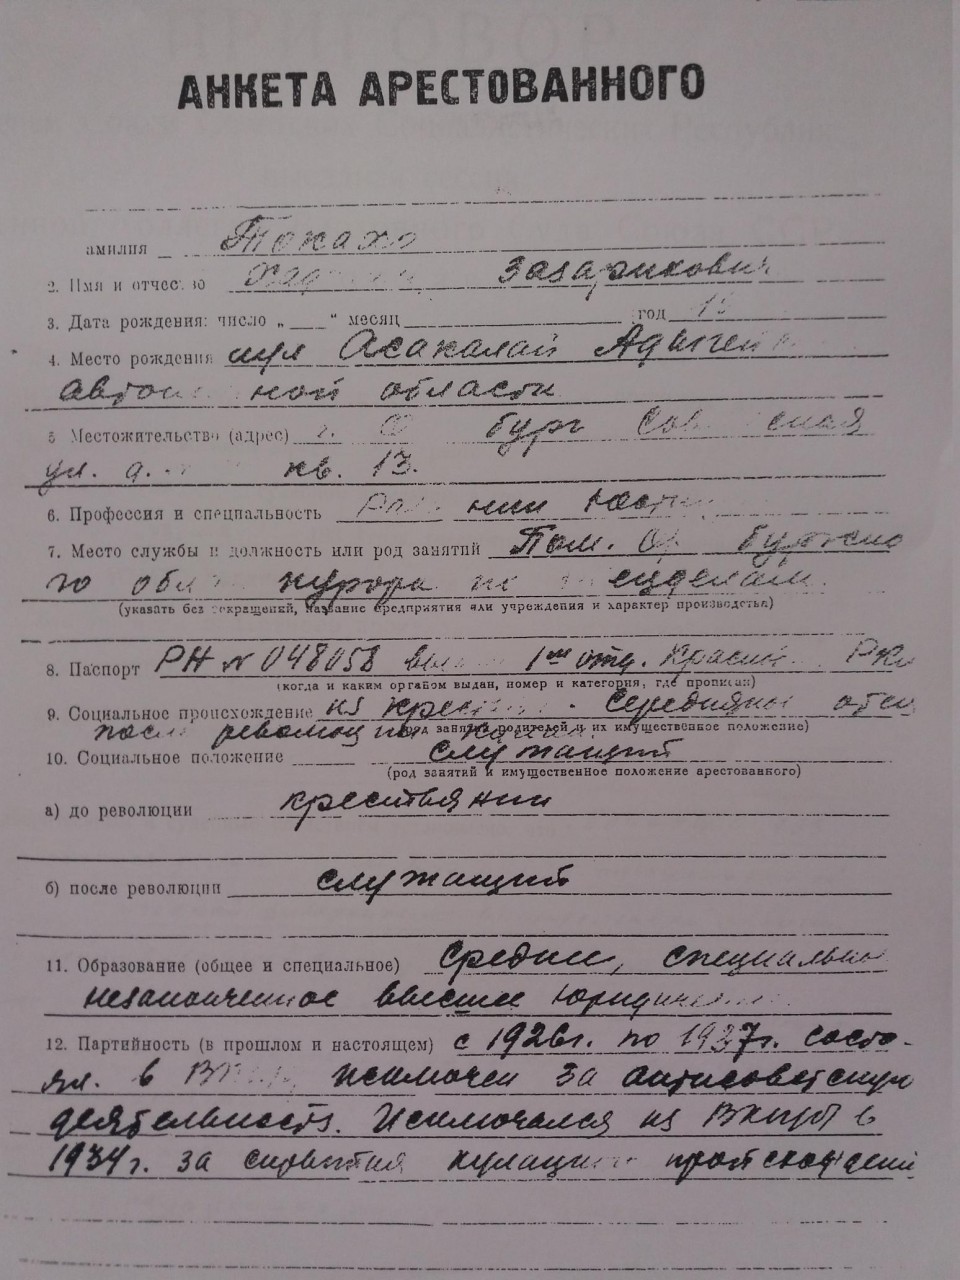 АНКЕТА АРЕСТОВАННОГО
амилия Токахо
2. Имя и отчество Зазарикович
3. Дата рождения: число „ “ месяц год 1
4. Место рождения аул Асакалай Адыгей
авто ной области
5 Местожительство (адрес) г. О бург Сов ская
ул. д. кв. 13.
6. Профессия и специальность Ра ник юст
7. Место службы и должность или род занятий Пом. Ор бургско
го обл курора по спецделам
(указать без сокращений, название предприятия или учреждения и характер производства)
8. Паспорт РН № 048058 выд 1ым отд. Красн РК
(когда и каким органом выдан, номер и категория, где прописан)
9. Социальное происхождение из крес Середняк отец
после революции
(род занятий родителей и их имущественное положение)
10. Социальное положение служащий
(род занятий и имущественное положение арестованного)
а) до революции крестьянин
б) после революции служащий
11. Образование (общее и специальное) среднее, специальное
незаконченное высшее юридич
12. Партийность (в прошлом и настоящем) с 1926г. по 1937г. состо-
ял. в ВК исключен за антисоветскую
деятельность. Исключался из ВКП(б) в
1934г. за скрытия кулацк происхождения